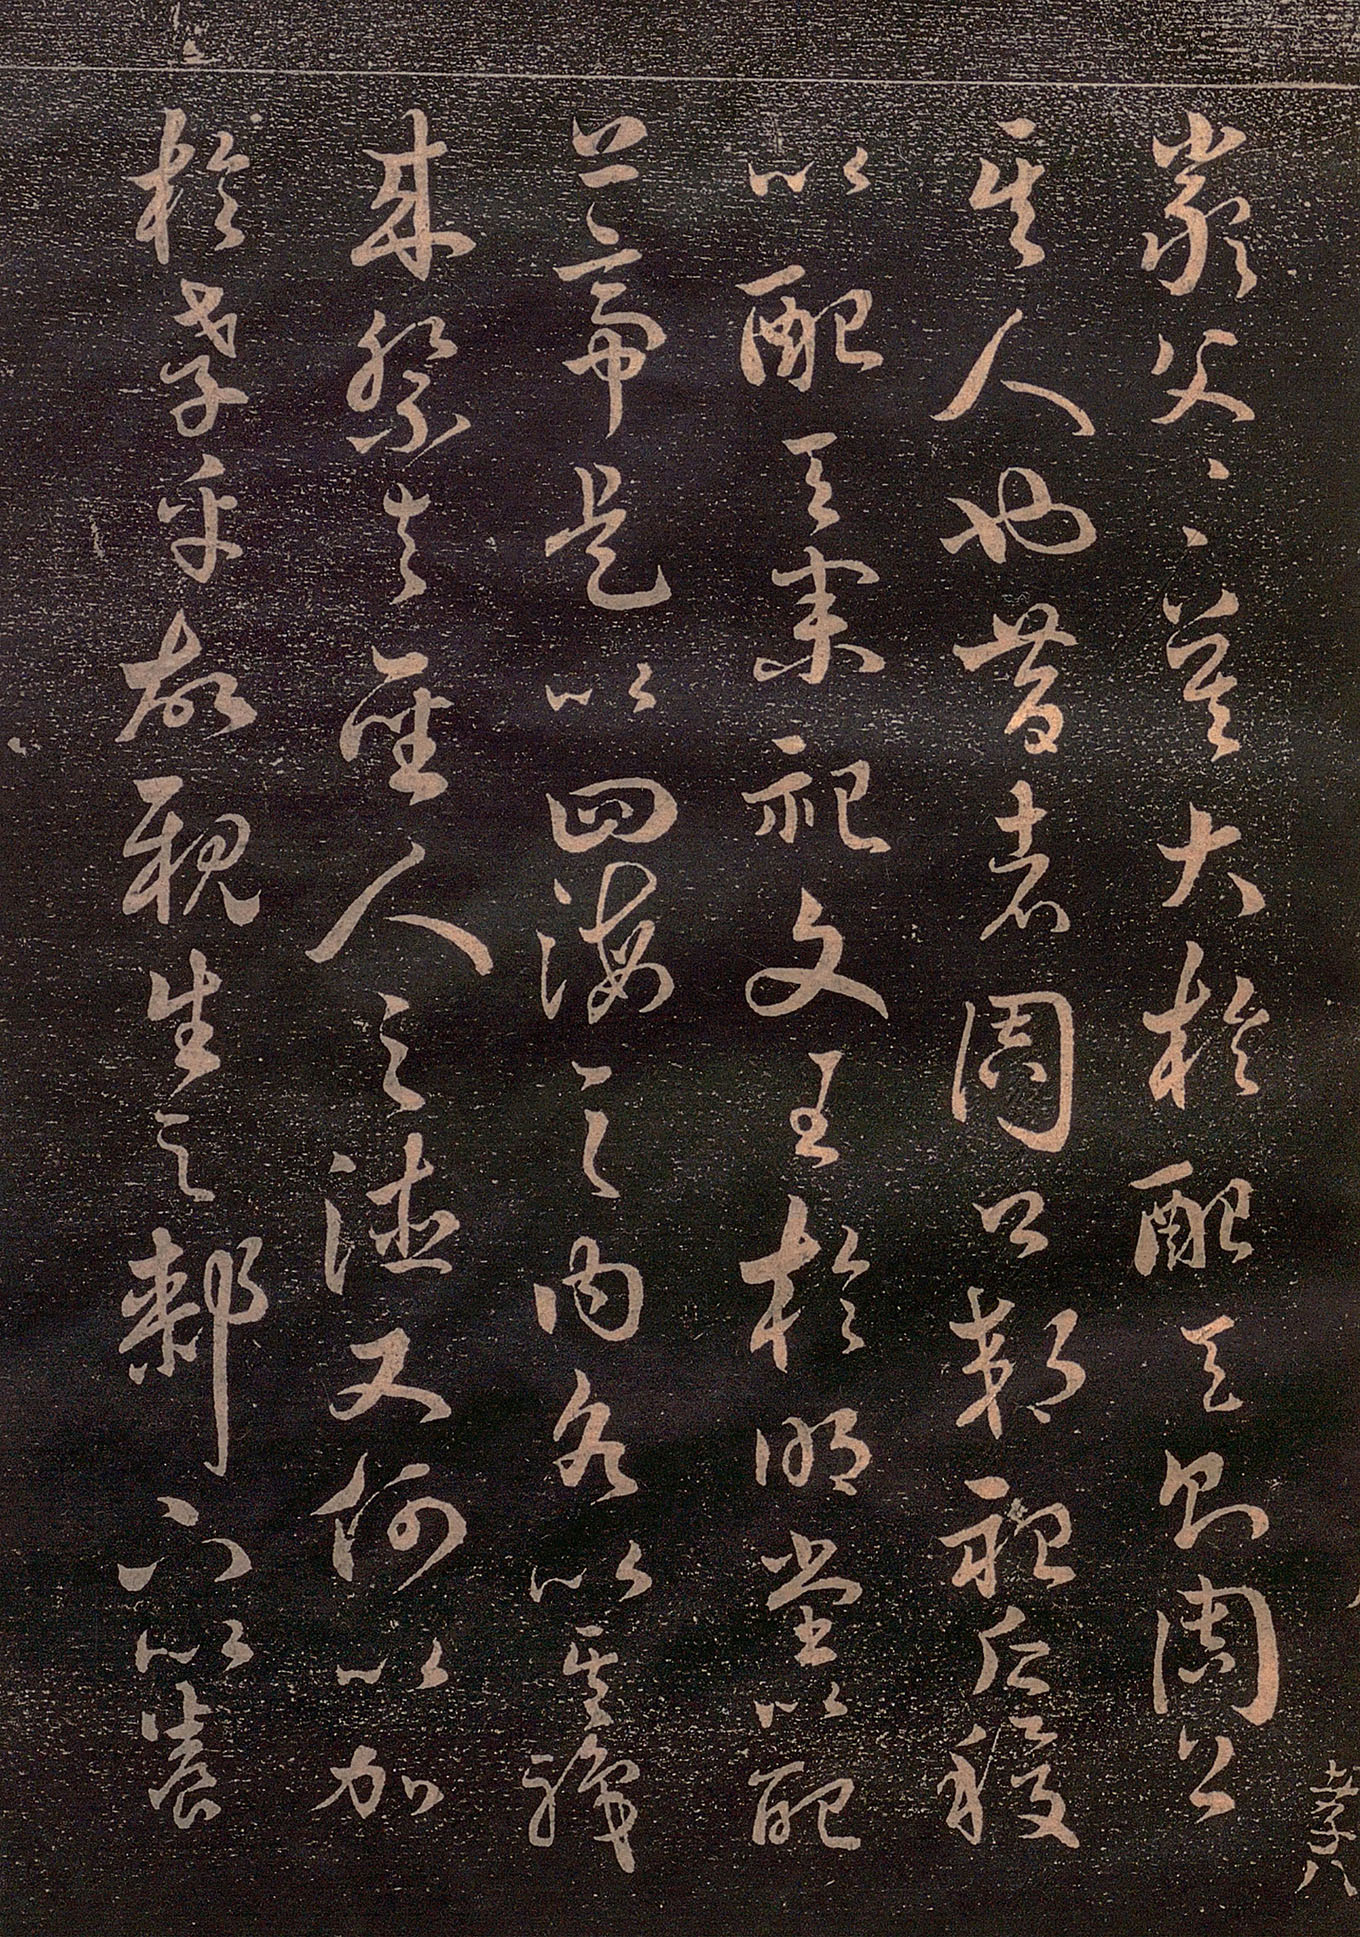 嚴父〻〻莫大於配天則周公
其人也昔者周公郊祀后稷
以配天宗祀文王於明堂以配
上帝是以四海之內各以其職
來祭夫聖人之德又何以加
於孝乎故親生之膝下以養
孝八